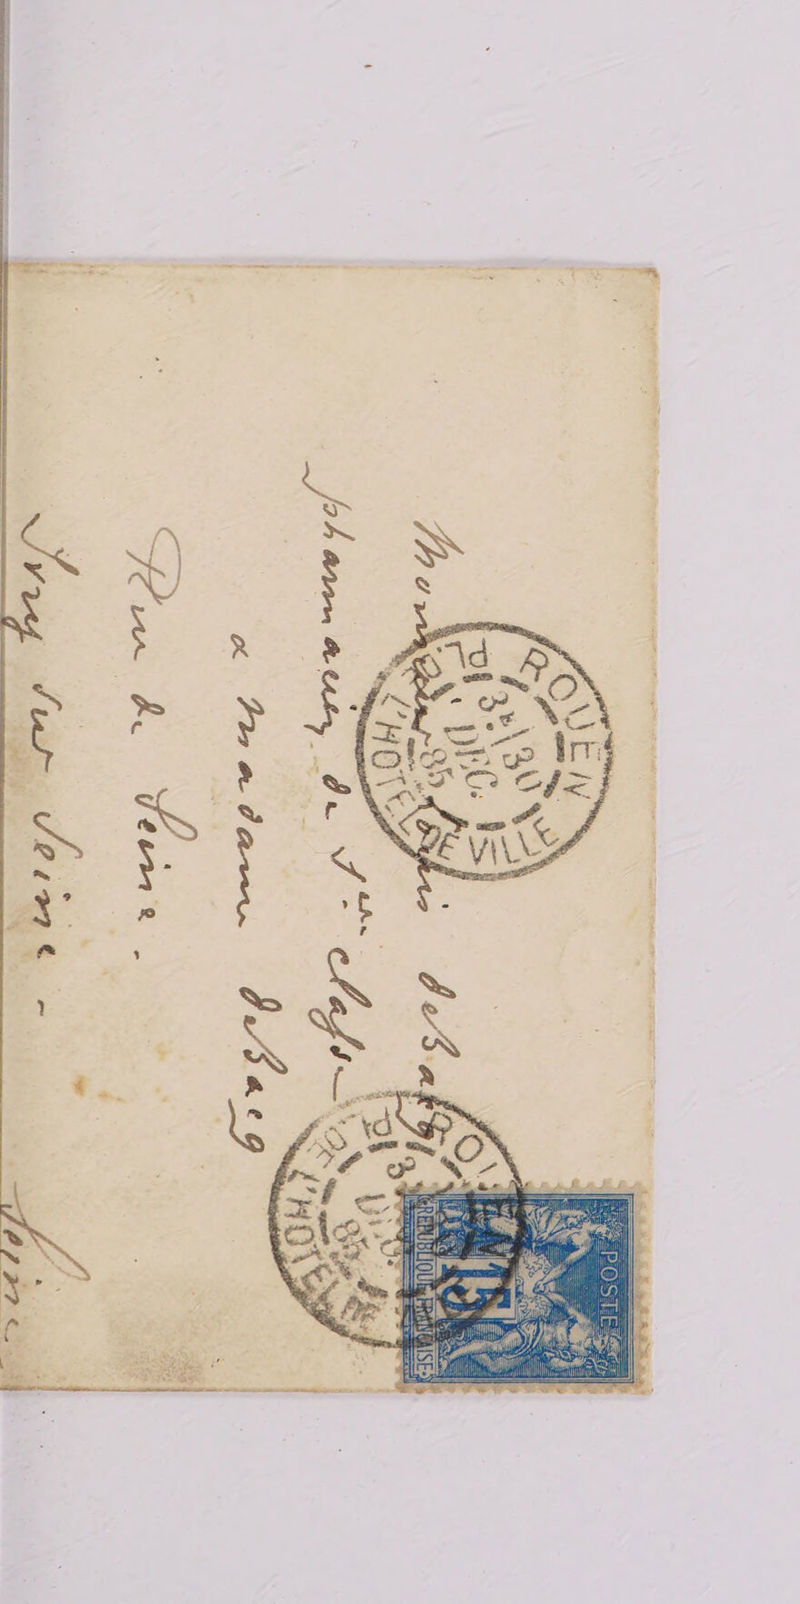 Monsieur Louis deBacq
pharmacien de 1ère classe
a Madame deBacq
Rue de Seine.
Ivry sur Seine -
Seine
ROUEN
PL. DE L'HOTEL DE VILLE
3E /30
DEC.
85
ROUEN
PL. DE L'HOTEL DE
3
DEC.
85
POSTE
15
REPUBLIQUE FRANÇAISE